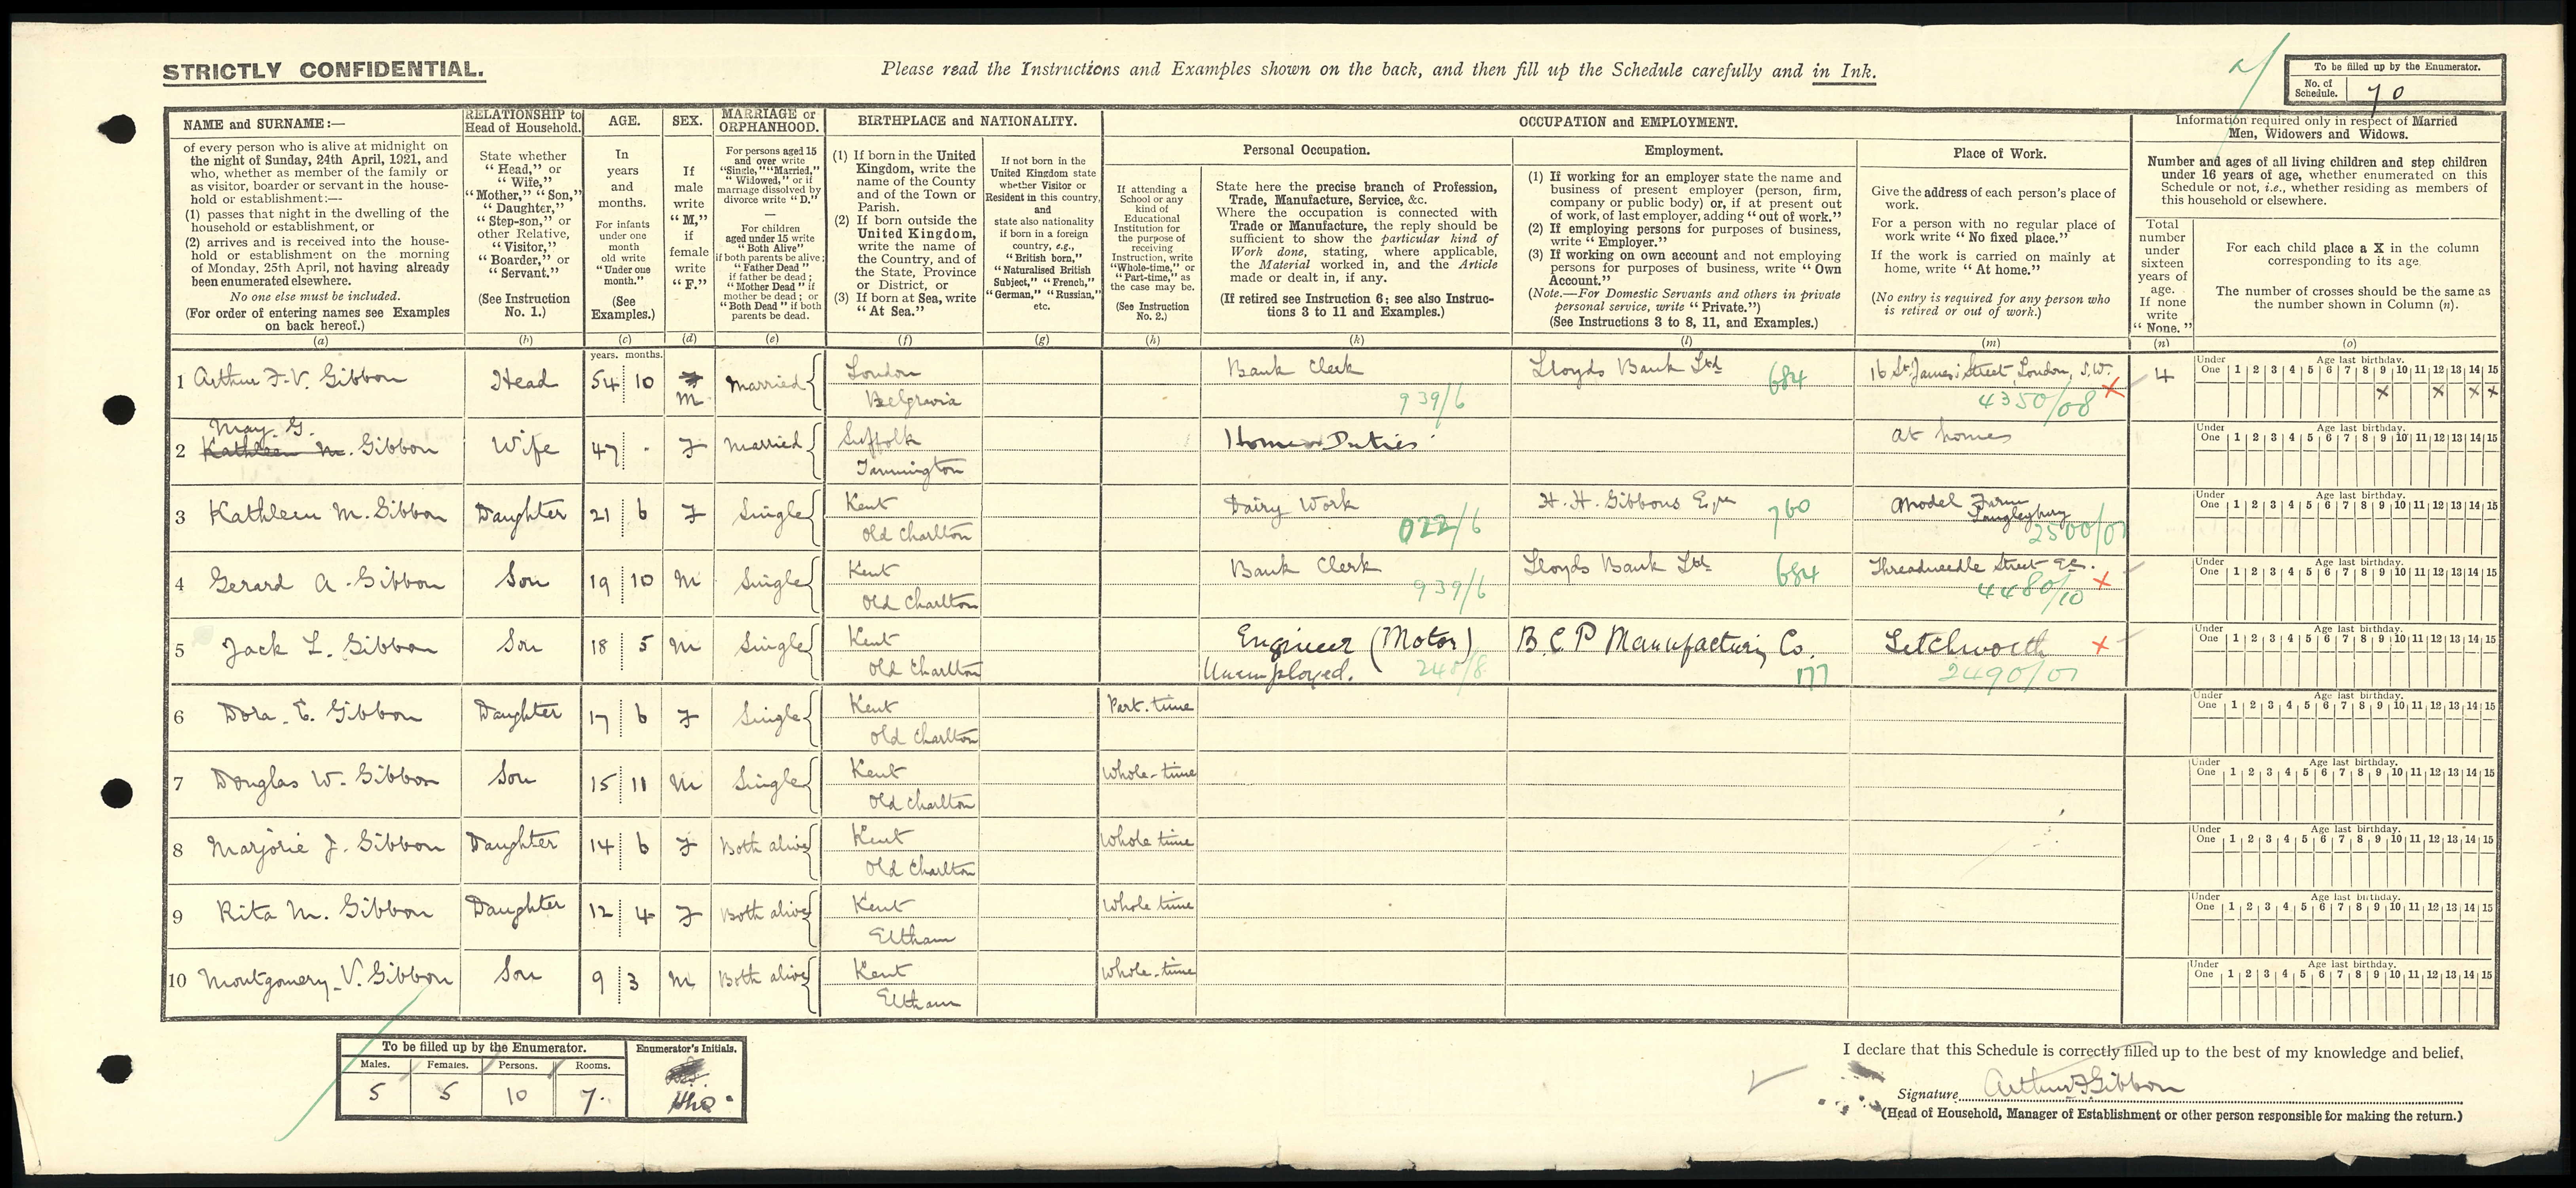 STRICTLY CONFIDENTIAL.
Please read the Instructions and Examples shown on the back, and then fill up the Schedule carefully and in Ink.
To be filled up by the Enumerator.
No. of Schedule. 70
NAME and SURNAME:—
of every person who is alive at midnight on
the night of Sunday, 24th April, 1921, and
who, whether as member of the family or
as visitor, boarder or servant in the house-
hold or establishment:—
(1) passes that night in the dwelling of the
household or establishment, or
(2) arrives and is received into the house-
hold or establishment on the morning
of Monday, 25th April, not having already
been enumerated elsewhere.
No one else must be included.
(For order of entering names see Examples
on back hereof.)
(a)
RELATIONSHIP to
Head of Household.
State whether
"Head," or
"Wife,"
"Mother," "Son,"
"Daughter,"
"Step-son," or
other Relative,
"Visitor,"
"Boarder," or
"Servant."
(See Instruction
No. 1.)
(b)
AGE.
In
years
and
months.
For infants
under one
month
old write
"Under one
month."
(See
Examples.)
(c)
years. months.
SEX.
If
male
write
"M,"
if
female
write
"F."
(d)
MARRIAGE or
ORPHANHOOD.
For persons aged 15
and over write
"Single," "Married,"
"Widowed," or if
marriage dissolved by
divorce write "D."
—
For children
aged under 15 write
"Both Alive"
if both parents be alive;
"Father Dead"
if father be dead;
"Mother Dead" if
mother be dead; or
"Both Dead" if both
parents be dead.
(e)
BIRTHPLACE and NATIONALITY.
(1) If born in the United
Kingdom, write the
name of the County
and of the Town or
Parish.
(2) If born outside the
United Kingdom,
write the name of
the Country, and of
the State, Province
or District, or
(3) If born at Sea, write
"At Sea."
(f)
If not born in the
United Kingdom state
whether Visitor or
Resident in this country,
and
state also nationality
if born in a foreign
country, e.g.,
"British born,"
"Naturalised British
Subject," "French,"
"German," "Russian,"
etc.
(g)
OCCUPATION and EMPLOYMENT.
Personal Occupation.
If attending a
School or any
kind of
Educational
Institution for
the purpose of
receiving
Instruction, write
"Whole-time," or
"Part-time," as
the case may be.
(See Instruction
No. 2.)
(h)
State here the precise branch of Profession,
Trade, Manufacture, Service, &c.
Where the occupation is connected with
Trade or Manufacture, the reply should be
sufficient to show the particular kind of
Work done, stating, where applicable,
the Material worked in, and the Article
made or dealt in, if any.
(If retired see Instruction 6; see also Instruc-
tions 3 to 11 and Examples.)
(k)
Employment.
(1) If working for an employer state the name and
business of present employer (person, firm,
company or public body) or, if at present out
of work, of last employer, adding "out of work."
(2) If employing persons for purposes of business,
write "Employer."
(3) If working on own account and not employing
persons for purposes of business, write "Own
Account."
(Note.—For Domestic Servants and others in private
personal service, write "Private.")
(See Instructions 3 to 8, 11, and Examples.)
(l)
Place of Work.
Give the address of each person's place of
work.
For a person with no regular place of
work write "No fixed place."
If the work is carried on mainly at
home, write "At home."
(No entry is required for any person who
is retired or out of work.)
(m)
Information required only in respect of Married
Men, Widowers and Widows.
Number and ages of all living children and step children
under 16 years of age, whether enumerated on this
Schedule or not, i.e., whether residing as members of
this household or elsewhere.
Total
number
under
sixteen
years of
age.
If none
write
"None."
(n)
For each child place a X in the column
corresponding to its age.
The number of crosses should be the same as
the number shown in Column (n).
(o)
1 Arthur F. V. Gibbon Head 54 10 M Married London Bank Clerk Lloyds Bank Ltd 684 16 St. James's Street, London, S.W. X 4
Belgravia 939/6 4350/08
Under One Age last birthday. 1 2 3 4 5 6 7 8 9 10 11 12 13 14 15
X X X X
May. G.
2 Kathleen M. Gibbon Wife 47 - F Married Suffolk Home Duties At home
Tannington
Under One Age last birthday. 1 2 3 4 5 6 7 8 9 10 11 12 13 14 15
3 Kathleen M. Gibbon Daughter 21 6 F Single Kent Dairy Work H. H. Gibbons Esqre 760 Model Farm Langleybury
Old Charlton 022/6 2500/07
Under One Age last birthday. 1 2 3 4 5 6 7 8 9 10 11 12 13 14 15
4 Gerard A. Gibbon Son 19 10 M Single Kent Bank Clerk Lloyds Bank Ltd 684 Threadneedle Street E.C. X
Old Charlton 939/6 4480/10
Under One Age last birthday. 1 2 3 4 5 6 7 8 9 10 11 12 13 14 15
5 Jack L. Gibbon Son 18 5 M Single Kent Engineer (Motor) B.C.P Manufacturing Co. Letchworth X
Old Charlton Unemployed. 240/8 177 2490/07
Under One Age last birthday. 1 2 3 4 5 6 7 8 9 10 11 12 13 14 15
6 Dora. E. Gibbon Daughter 17 6 F Single Kent Part-time
Old Charlton
Under One Age last birthday. 1 2 3 4 5 6 7 8 9 10 11 12 13 14 15
7 Douglas W. Gibbon Son 15 11 M Single Kent Whole-time
Old Charlton
Under One Age last birthday. 1 2 3 4 5 6 7 8 9 10 11 12 13 14 15
8 Marjorie J. Gibbon Daughter 14 6 F Both alive Kent Whole time
Old Charlton
Under One Age last birthday. 1 2 3 4 5 6 7 8 9 10 11 12 13 14 15
9 Rita M. Gibbon Daughter 12 4 F Both alive Kent Whole time
Eltham
Under One Age last birthday. 1 2 3 4 5 6 7 8 9 10 11 12 13 14 15
10 Montgomery. V. Gibbon Son 9 3 M Both alive Kent Whole-time
Eltham
Under One Age last birthday. 1 2 3 4 5 6 7 8 9 10 11 12 13 14 15
To be filled up by the Enumerator. Enumerator's Initials.
Males. Females. Persons. Rooms.
5 5 10 7.
I declare that this Schedule is correctly filled up to the best of my knowledge and belief.
Signature Arthur F Gibbon
(Head of Household, Manager of Establishment or other person responsible for making the return.)